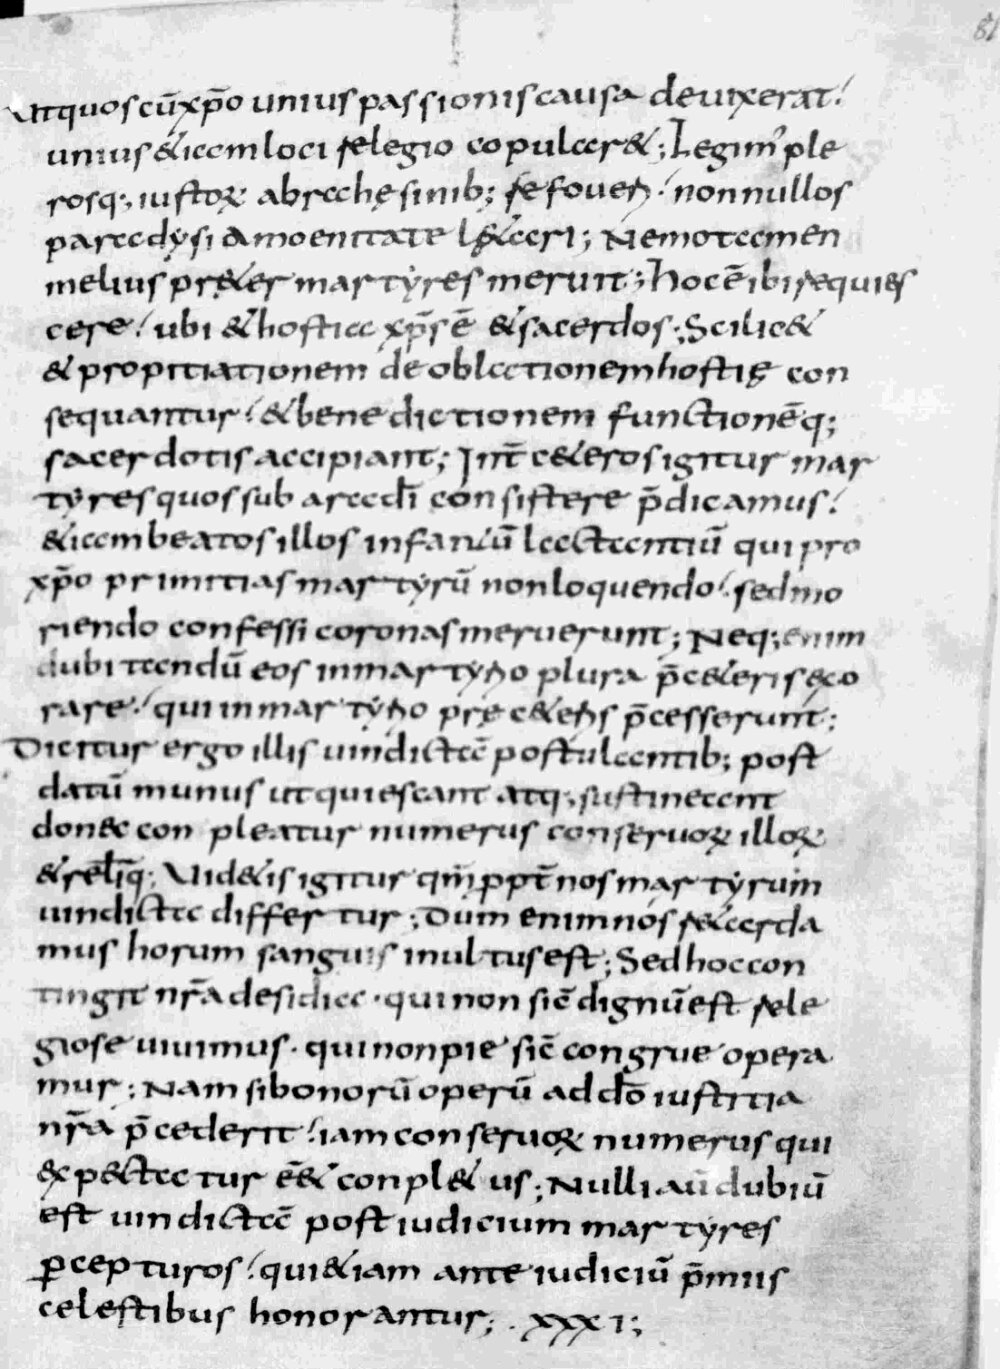 Vt quos cū xp̄o unius passionis causa deuixerat.
unius &iam loci relegio copular&; Legim' ple
rosq; iustoꝝ abrahę sinib; refoueri. nonnullos
paradysi amoenitate l&ari; Nemo tamen
melius pr&er martyres meruit; hoc ē ibi requies
cere. ubi & hostia xp̄s ē & sacerdos; Scilic&
& propitiationem de oblationem hostię con
sequantur. & benedictionem functionēq;
sacerdotis accipiant; Int̄ c&eros igitur mar
tyres quos sub ara dn̄i consistere p̄dicamus.
&iam beatos illos infantū lactantiū qui pro
xp̄o primitias martyrū non loquendo. sed mo
riendo confessi coronas meruerunt; Neq; enim
dubitandū eos in martyrio plura p̄ c&eris exo
rare. qui in martyrio prę c&eris p̄cesserunt;
Dicitur ergo illis uindictā postulantib; post
datū munus ut quiescant atq; sustineant
donec conpleatur numerus conseruoꝝ illoꝝ
& reliq̄; Vid&is igitur qm̄ ppt̄ nos martyrum
uindicta differtur; Dum enim nos r&arda
mus horum sanguis inultus est; Sed hoc con
tingit nr̄a desidia. qui non sic̄ dignū est rele
giose uiuimus. qui non pie sic̄ congrue opera
mur; Nam si bonorū operū ad dō iustitia
nr̄a p̄cederit. iam conseruoꝝ numerus qui
expectatur ēē& conpl&us; Nulli aū dubiū
est uindictā post iudicium martyres
ꝑcepturos. qui &iam ante iudiciū p̄miis
celestibus honorantur; . XXXI;